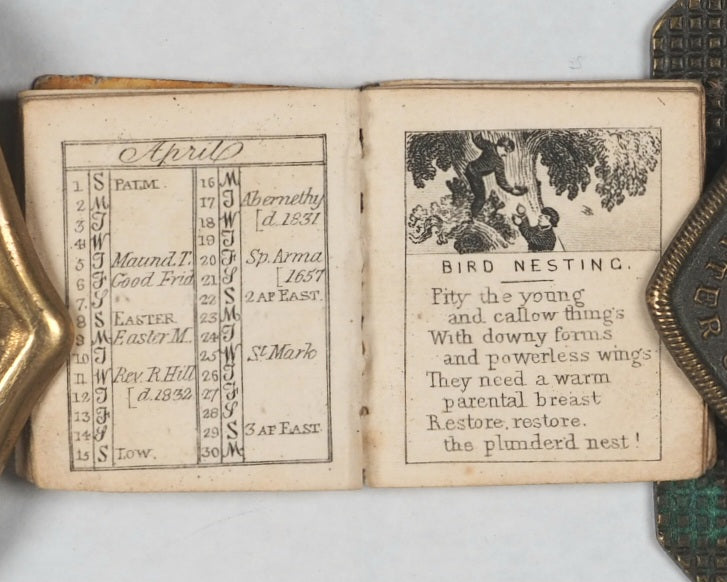 April
1 S PALM.
2 M
3 T
4 W
5 T Maund. T.
6 F Good Frid
7 S
8 S EASTER
9 M Easter M.
10 T
11 W Rev. R. Hill
12 T [d. 1832
13 F
14 S
15 S LOW.
16 M
17 T Abernethy
18 W [d. 1831
19 T
20 F Sp. Arma
21 S [1657
22 S 2 AF EAST.
23 M
24 T
25 W St Mark
26 T
27 F
28 S
29 S 3 AF EAST.
30 M
BIRD NESTING.
Pity the young
and callow things
With downy forms
and powerless wings
They need a warm
parental breast
Restore, restore.
the plunder'd nest!
TER